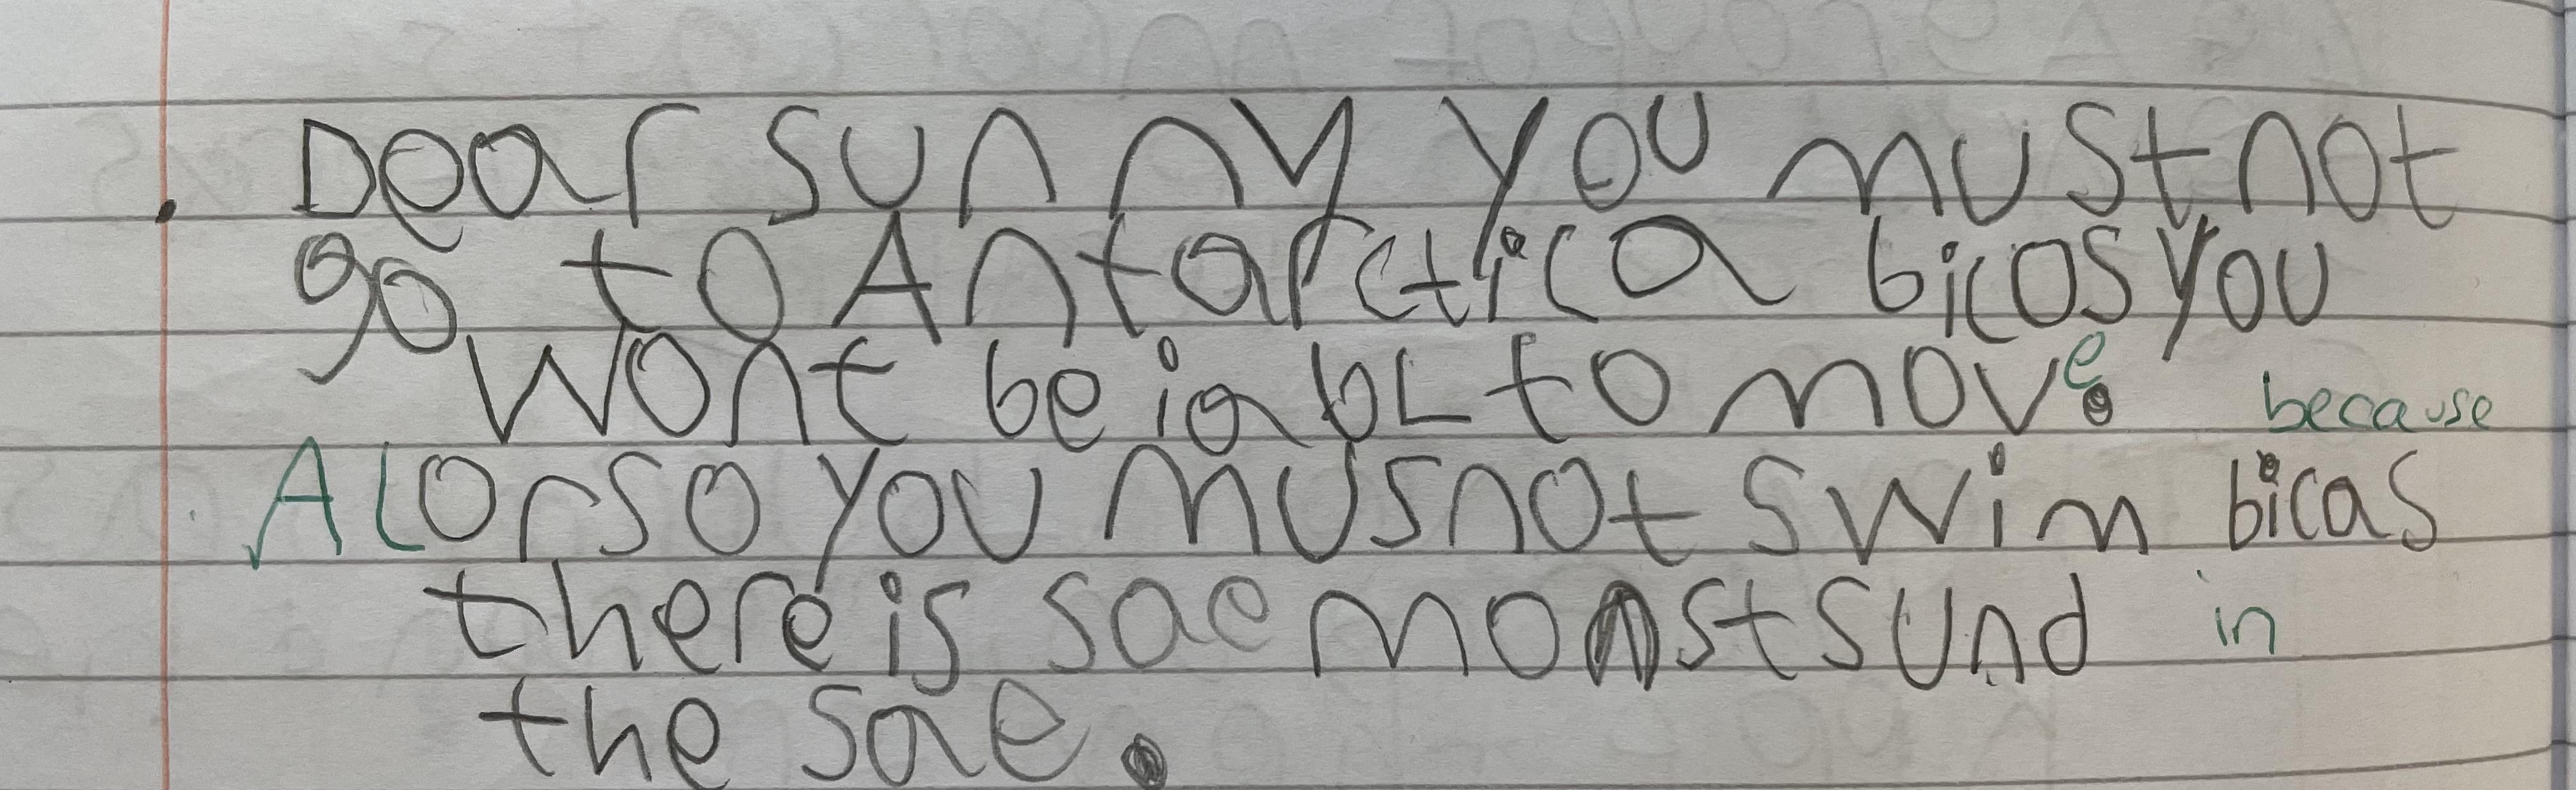 Dear sunny you must not
go to Antarctica bicos you
wont be iabl to move.
because
Alorso you musnot swim bicas
there is sae monsts und in
the sae.